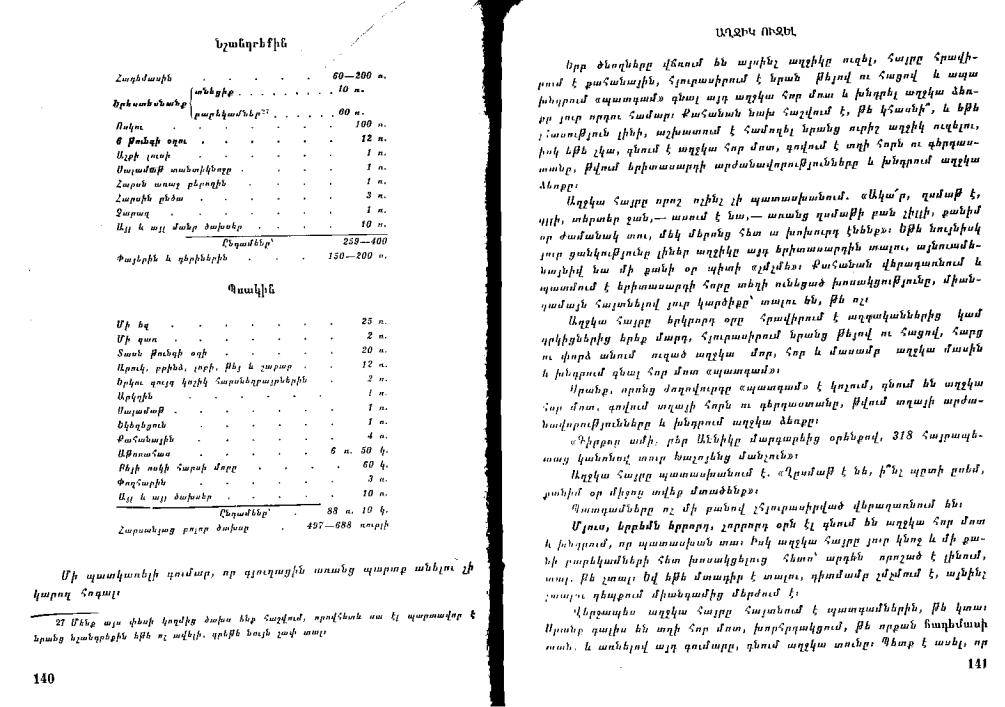 Նշանդրեքին
Հադեմասին . . . . . 60—200 ռ.
Երեստեսնանք տնեցիք . . . . . . . . 10 ռ.
բարեկամներ²⁷ . . . . . . 60 ռ.
Ոսկու . . . . . . 100 ռ.
6 թունգի օղու . . . . . . 12 ռ.
Աչքի լուսի . . . . . 1 ռ.
Սալամաթ տանտիկնոջը . . . . . 1 ռ.
Հարսն առաջ բերողին . . . . 1 ռ.
Հարսին ընծա . . . . . 3 ռ.
Չարազ . . . . . . 1 ռ.
Այլ և այլ մանր ծախսեր . . . . 10 ռ.
Ընդամենը՝ 259—400
Փայերին և դերիներին . . 150—200 ռ.
Պսակին
Մի եզ . . . . . . . 25 ռ.
Մի գառ . . . . . . . 2 ռ.
Տասն թունգի օղի . . . . . 20 ռ.
Արուկ, բրինձ, լոբի, թեյ և շաքար . . 12 ռ.
Երկու զույգ կոշիկ հարսնեղբայրներին . . 2 ռ.
Արկղին . . . . . . . 1 ռ.
Սալամաթ . . . . . . . 1 ռ.
Եկեղեցուն . . . . . . 1 ռ.
Քահանային . . . . . . 4 ռ.
Աթոռահաս . . . . . 6 ռ. 50 կ.
Բեյի ոսկի հարսի մորը . . . . 60 կ.
Փողհարին . . . . . . 3 ռ.
Այլ և այլ ծախսեր . . . . . 10 ռ.
Ընդամենը՝ . 88 ռ. 10 կ.
Հարսանյաց բոլոր ծախսը . 497—688 ռուբլի
Մի պատկառելի գումար, որ գյուղացին առանց պարտք անելու չի
կարող հոգալ։
27 Մենք այս փեսի կողմից ծախս ենք հաշվում, որովհետև սա էլ պարտավոր է
նրանց նշանդրեքին եթե ոչ ավելի, գրեթե նույն չափ տալ։
140
ԱՂՋԻԿ ՈՒԶԵԼ
Երբ ծնողները վճռում են այսինչ աղջիկը ուզել, հայրը հրավի-
րում է քահանային, հյուրասիրում է նրան թեյով ու հացով և ապա
խնդրում «պատգամ» գնալ այդ աղջկա հոր մոտ և խնդրել աղջկա ձեռ-
քը յուր որդու համար։ Քահանան նախ հաշվում է, թե կհասնի՞, և եթե
չհասություն լինի, աշխատում է համոզել նրանց ուրիշ աղջիկ ուզելու,
իսկ եթե չկա, գնում է աղջկա հոր մոտ, գովում է տղի հորն ու գերդաս-
տանը, թվում երիտասարդի արժանավորությունները և խնդրում աղջկա
ձեռքը։
Աղջկա հայրը որոշ ոչինչ չի պատասխանում. «Ակա՛ր, ղսմաթ է,
գլլի, տերտեր ջան,— ասում է նա,— առանց ղսմաթի բան չիլլի, քանիմ
օր ժամանակ տու, մեկ մերոնց հետ ա խոխուրդ էնենք»։ Եթե նույնիսկ
յուր ցանկությունը լիներ աղջիկը այդ երիտասարդին տալու, այնուամե-
նայնիվ նա մի քանի օր պիտի «չմչմե»։ Քահանան վերադառնում և
պատմում է երիտասարդի հորը տեղի ունեցած խոսակցությունը, միան-
գամայն հայտնելով յուր կարծիքը՝ տալու են, թե ոչ։
Աղջկա հայրը երկրորդ օրը հրավիրում է ազգականներից կամ
դրկիցներից երեք մարդ, հյուրասիրում նրանց թեյով ու հացով, հարց
ու փորձ անում ուզած աղջկա մոր, հոր և մասամբ աղջկա մասին
և խնդրում գնալ հոր մոտ «պատգամ»։
Սրանք, որոնց ժողովուրդը «պատգամ» է կոչում, գնում են աղջկա
հոր մոտ, գովում տղայի հորն ու գերդաստանը, թվում տղայի արժա-
նավորությունները և խնդրում աղջկա ձեռքը։
«Գիրքով ամի, բեր Աննիկը մարգարեից օրենքով, 318 հայրապե-
տաց կանոնով տուր Խաչոյենց մանչուն»։
Աղջկա հայրը պատասխանում է. «Ղըսմաթ է նե, ի՞նչ պըտի ըսեմ,
քանիմ օր միջոց տվեք մտածենք»։
Պատգամները ոչ մի բանով չհյուրասիրված վերադառնում են։
Մյուս, երբեմն երրորդ, չորրորդ օրն էլ գնում են աղջկա հոր մոտ
և խնդրում, որ պատասխան տա։ Իսկ աղջկա հայրը յուր կնոջ և մի քա-
նի բարեկամների հետ խոսակցելուց հետո՝ արդեն որոշած է լինում,
տալ, թե չտալ։ Եվ եթե մտադիր է տալու, դիտմամբ չմչմում է, այնինչ
չտալու դեպքում միանգամից մերժում է։
Վերջապես աղջկա հայրը հայտնում է պատգամներին, թե կտա։
Սրանք գալիս են տղի հոր մոտ, խորհրդակցում, թե որքան հադեմասի
տան, և առնելով այդ գումարը, գնում աղջկա տունը։ Պետք է ասել, որ
141